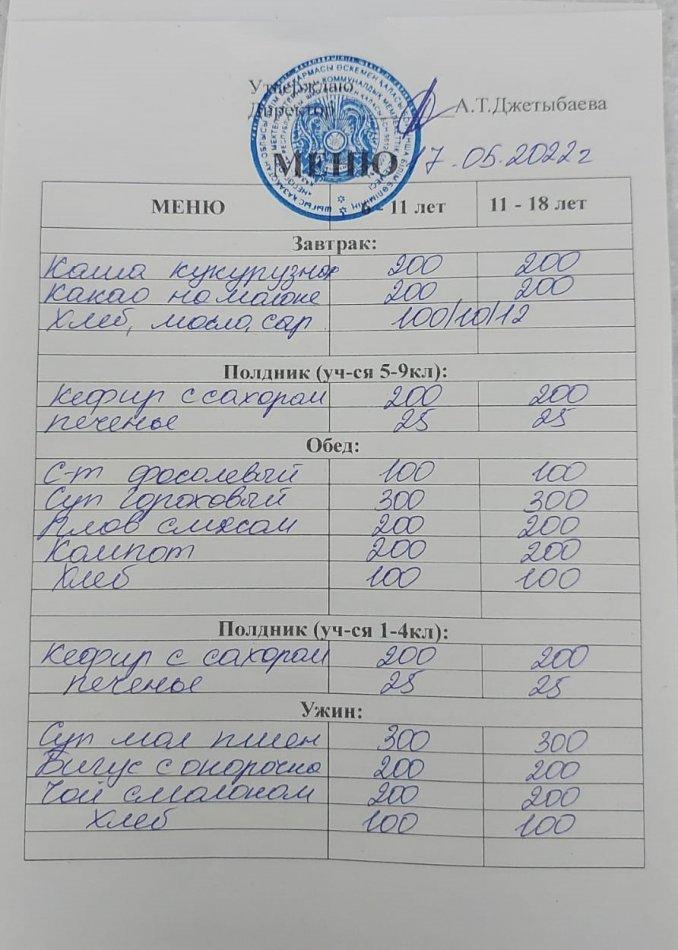 Утверждаю
Директор А.Т.Джетыбаева
МЕНЮ 17.05.2022г
МЕНЮ 6 - 11 лет 11 - 18 лет
Завтрак:
Каша кукурузная 200 200
Какао на молоке 200 200
Хлеб, масло, сар 100/10/12
Полдник (уч-ся 5-9кл):
Кефир с сахаром 200 200
печенье 25 25
Обед:
С-т фасолевый 100 100
Суп гороховый 300 300
Плов с мясом 200 200
Компот 200 200
Хлеб 100 100
Полдник (уч-ся 1-4кл):
Кефир с сахаром 200 200
печенье 25 25
Ужин:
Суп мол пшен 300 300
Бигус с окорочка 200 200
Чай с молоком 200 200
Хлеб 100 100